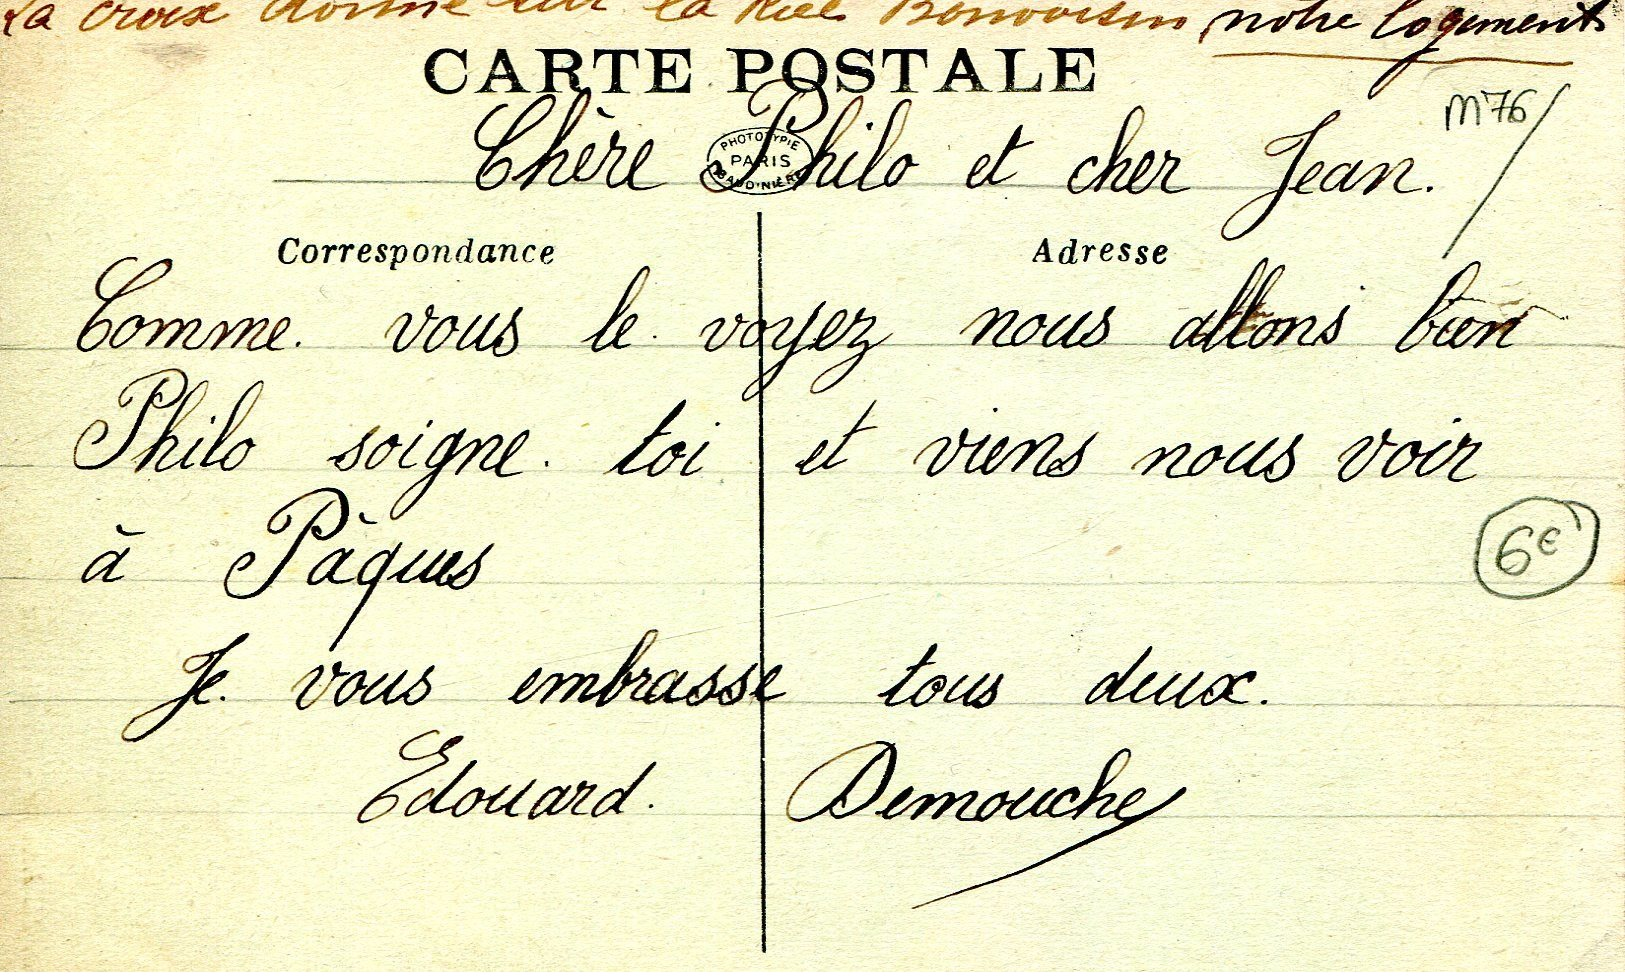 La croix donne sur la Rue Bonvoisin notre logement
CARTE POSTALE
M76/
PHOTOTYPIE
PARIS
BAUDINIÈRE
Chère Philo et cher Jean.
Correspondance Adresse
Comme. vous le. voyez nous allons bien
Philo soigne. toi et viens nous voir
à Pâques
6€
Je. vous embrasse tous deux.
Edouard. Demouche